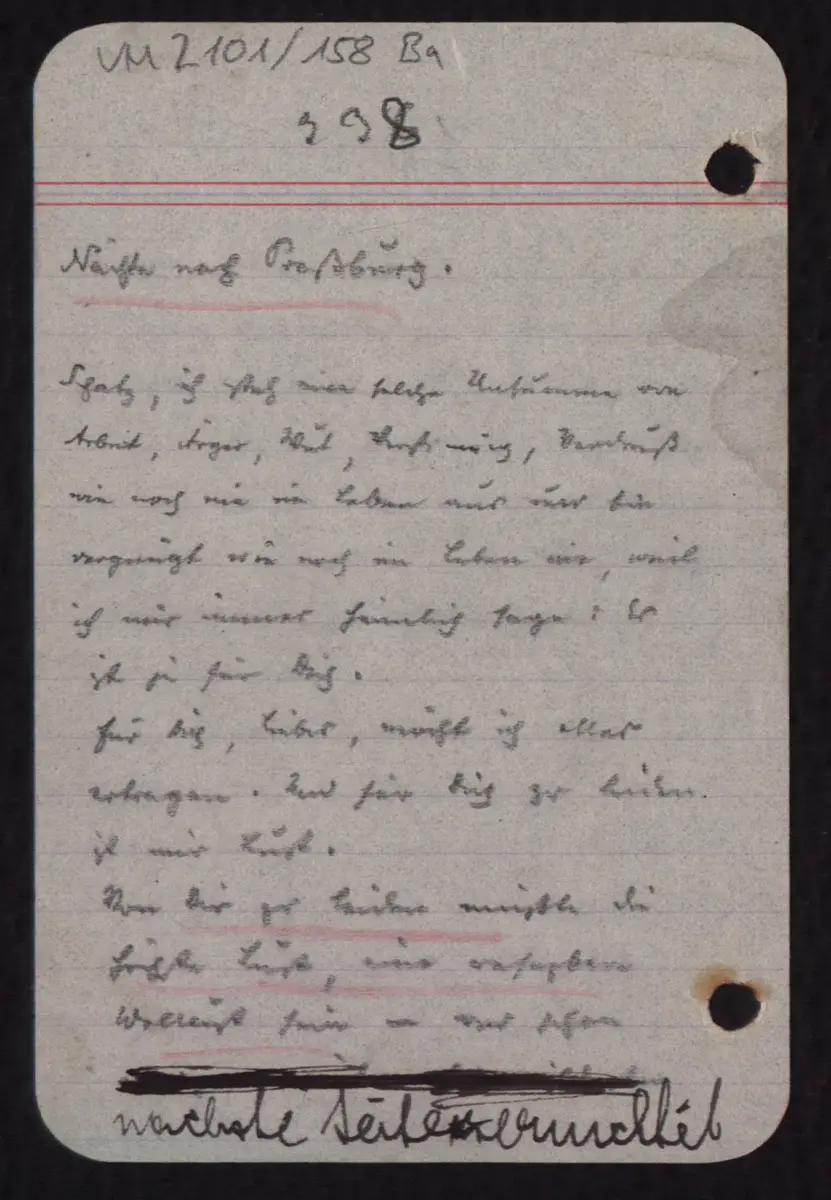 VM 2101/158 Ba
998
Nächte nach Preßburg.
Schatz, ich steh eine solche Unsumme von
Arbeit, Ärger, Wut, Verdruß
wie noch nie im Leben aus und bin
vergnügt wie noch im Leben nie, weil
ich mir immer heimlich sage: Es
ist ja für Dich.
Für Dich, Liebes, möcht ich alles
ertragen. Und für Dich zu leiden
ist mir Lust.
Von Dir zu leiden müßte die
höchste Lust, eine
Wollust sein – und schon
nächste Seite vernichtet